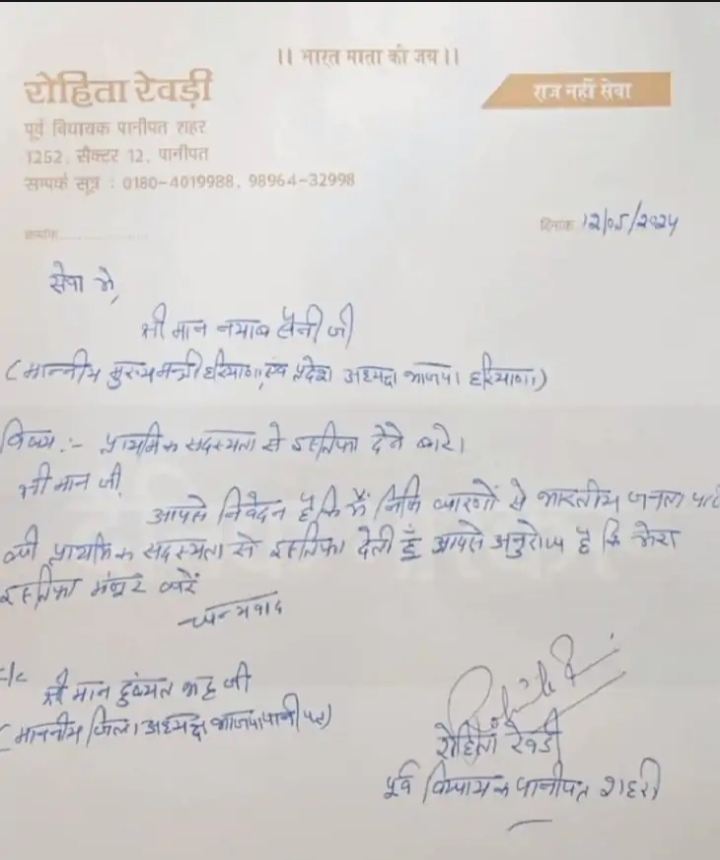 ।। भारत माता की जय ।।
रोहिता रेवड़ी
राज नहीं सेवा
पूर्व विधायक पानीपत शहर
1252, सैक्टर 12, पानीपत
सम्पर्क सूत्र : 0180-4019988, 98964-32998
क्रमांक..................
दिनांक 12/05/2024
सेवा मे,
श्री मान नयाब सैनी जी
(माननीय मुख्यमन्त्री हरियाणा, एवं प्रदेश अध्यक्ष भाजपा हरियाणा)
विषय :- प्राथमिक सदस्यता से इस्तिफा देने बारे।
श्री मान जी,
आपसे निवेदन है कि मैं निजि कारणों से भारतीय जनता पार्टी
की प्राथमिक सदस्यता से इस्तिफा देती हूँ आपसे अनुरोध है कि मेरा
इस्तिफा मंजूर करें
धन्यवाद
c/c
श्री मान दुष्यंत भट्ट जी
(माननीय जिला अध्यक्ष भाजपा पानीपत)
रोहिता रेवड़ी
पूर्व विधायक पानीपत शहरी